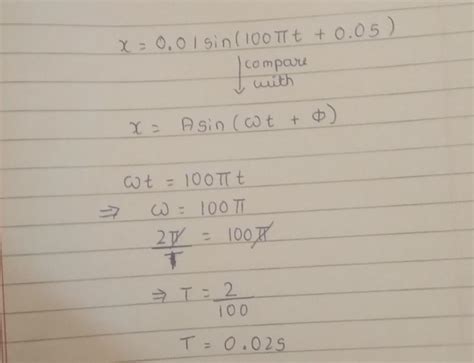 x = 0.01 sin(100πt + 0.05)
↓ compare
with
x = A sin(ωt + Φ)
ωt = 100πt
⇒ ω = 100π
2π/T = 100π
⇒ T = 2/100
T = 0.02s